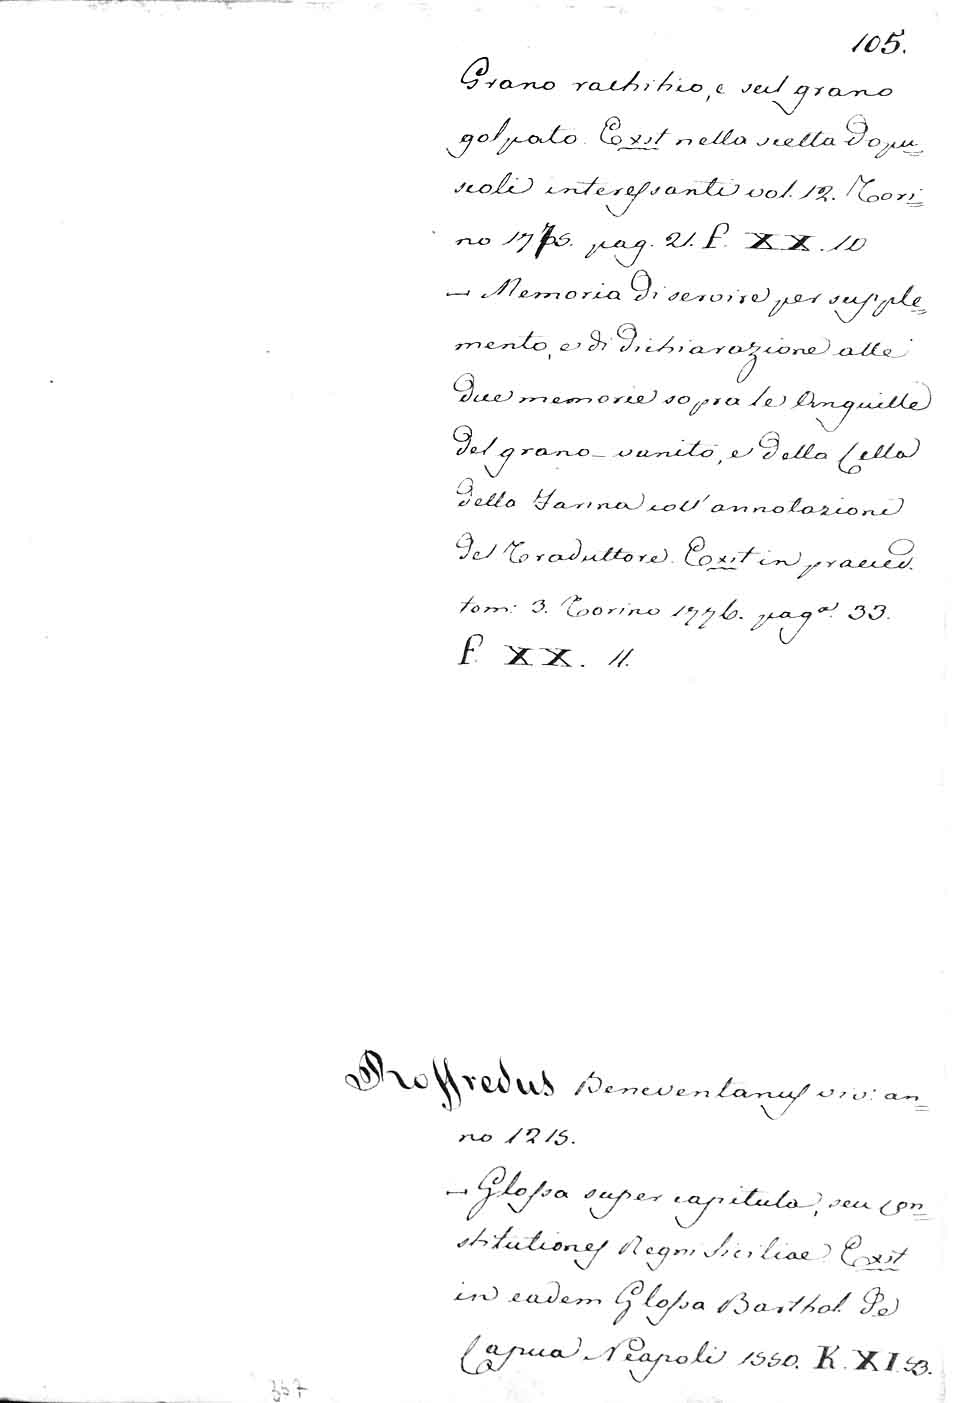 105.
Grano rachitico, e sul grano
golpato. Exst nella scelta d'opu=
scoli interessanti vol. 12. Tori=
no 1775. pag. 21. f. XX. 10
— Memoria di servire per supple=
mento, e di dichiarazione alle
due memorie sopra le Anguille
del grano vanito, e della Colla
della Farina coll' annotazioni
del Traduttore. Exst in praeced.
tom: 3. Torino 1776. pag.ª 33.
f. XX. 11.
Roffredus Beneventanus viv: an=
no 1215.
— Glossa super capitula, seu con=
stitutiones Regni Siciliae. Exst
in eadem Glossa Barthol. De
Capua Neapoli 1550. K. XI. 53.
367